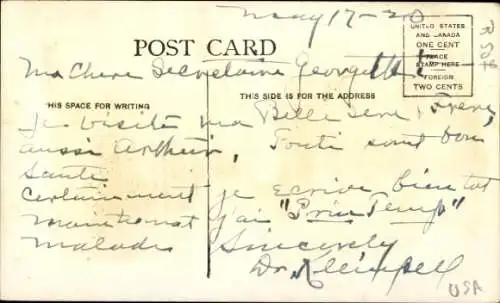 May 17-20
POST CARD
UNITED STATES
AND CANADA
ONE CENT
PLACE
STAMP HERE
FOREIGN
TWO CENTS
Ma Chere Secretaire Georgette
HIS SPACE FOR WRITING
THIS SIDE IS FOR THE ADDRESS
Je visite ma Belle Sere, Frere,
aussi Arthur, Touti sont bon
sante
Certainment je ecrive bien tot
maintenat j'ai "Prin Temp"
malade
Sincerely
Dr.
USA